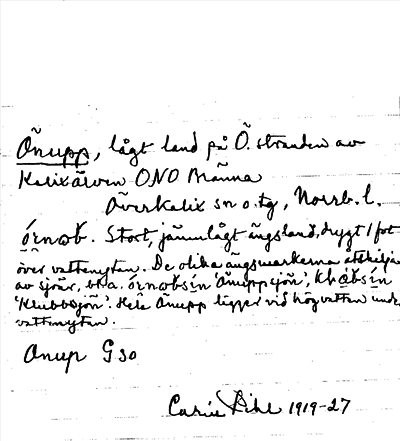 Änupp, lågt land på Ö. stranden av
Kalixälven ONO Bränna
Överkalix sn o. tg, Norrb. l.
órnœb. Stort, jämnlågt ängsland, drygt 1 fot
över vattenytan. De olika ängsmarkerna åtskiljas
av sjöar, bl.a. órnœbsín 'Änuppsjön', khabsín
'Klubbsjön'. Hela Änupp ligger vid högvatten under
vattenytan.
Anup Gso
Carin Pihl 1919-27